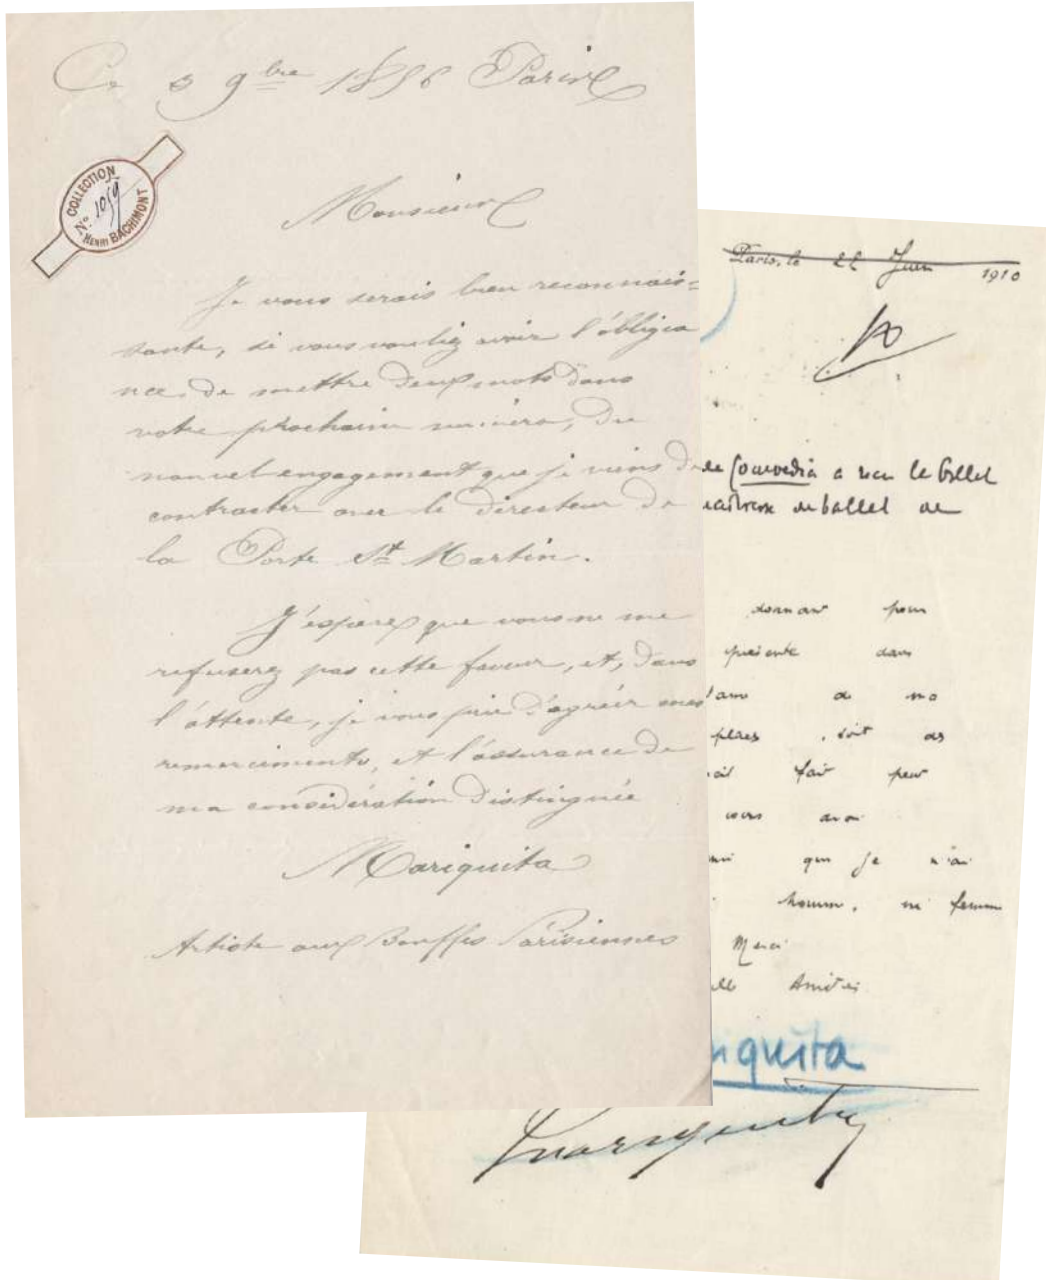 Ce 3 9bre 1856 Paris
COLLECTION
No. 1059
HENRI BACHIMONT
Monsieur
Je vous serais bien reconnais=
sante, si vous vouliez avoir l'obligea
nce, de mettre deux mots dans
votre prochain numéro, du
nouvel engagement que je viens de
contracter avec le directeur de
la Porte St Martin.
J'espère que vous ne me
refuserez pas cette faveur, et, dans
l'attente, je vous prie d'agréér mes
remerciments, et l'assurance de
ma considération distinguée
Mariquita
Artiste aux Bouffes Parisiennes
Paris, le 22 Juin 1910
de Comœdia a reçu le billet
de ballet de
donnant pour
présente dans
de ma
, soit des
fait peur
cours
que je n'ai
homme, ni femme
Merci
Amitiés
iquita
Mariquita